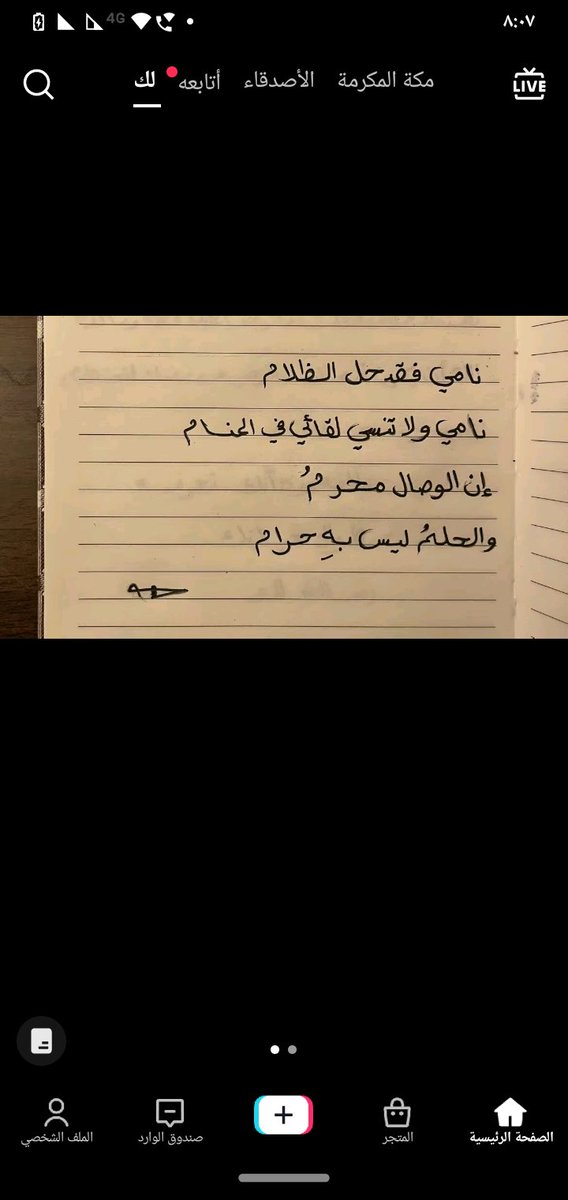 4G
٨:٠٧
مكة المكرمة الأصدقاء أتابعه لك
LIVE
نامي فقد حل الظلام
نامي ولا تنسي لقائي في المنام
إن الوصال محرمُ
والحلمُ ليس بهِ حرام
الصفحة الرئيسية المتجر صندوق الوارد الملف الشخصي